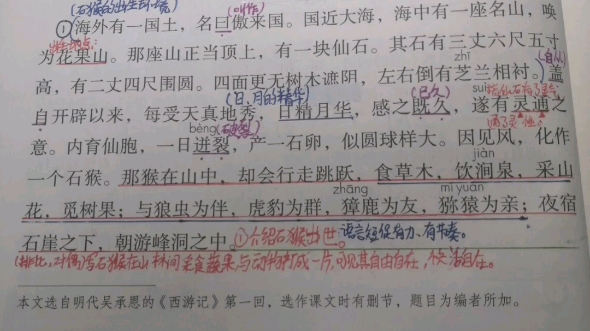 (石猴的出生环境)
(叫作)
①海外有一国土，名曰傲来国。国近大海，海中有一座名山，唤
出生地点:
为花果山。那座山正当顶上，有一块仙石。其石有三丈六尺五寸
zhī
高，有二丈四尺围圆。四面更无树木遮阴，左右倒有芝兰相衬。盖
(自从)
(日、月的精华)
(已久)
suì
自开辟以来，每受天真地秀，日精月华，感之既久，遂有灵通之
bèng
意。内育仙胞，一日迸裂，产一石卵，似圆球样大。因见风，化作
jiàn
一个石猴。那猴在山中，却会行走跳跃，食草木，饮涧泉，采山
zhāng
mí yuán
花，觅树果；与狼虫为伴，虎豹为群，獐鹿为友，猕猿为亲；夜宿
石崖之下，朝游峰洞之中。①介绍石猴出世。语言短促有力、有节奏。
(排比，对偶)写石猴在山林间采食蔬果与动物打成一片，可见其自由自在，快活自在。
本文选自明代吴承恩的《西游记》第一回，选作课文时有删节，题目为编者所加。